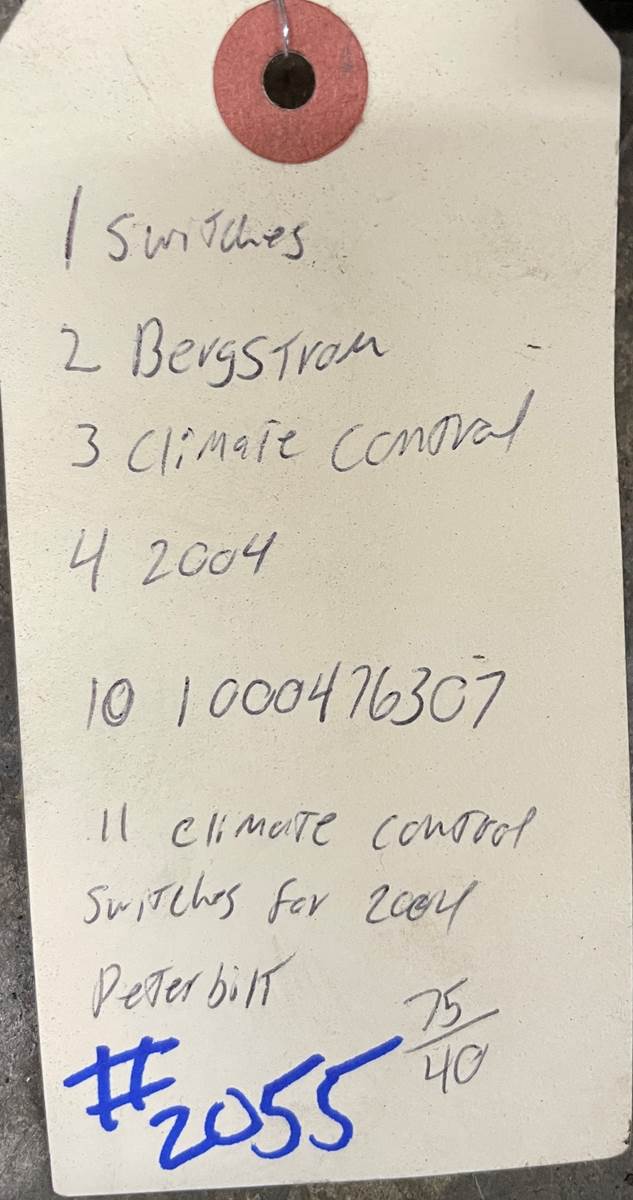 1 Switches
2 Bergstrom
3 Climate control
4 2004
10 1000476307
11 climate control
switches for 2004
Peterbilt
75/40
#2055